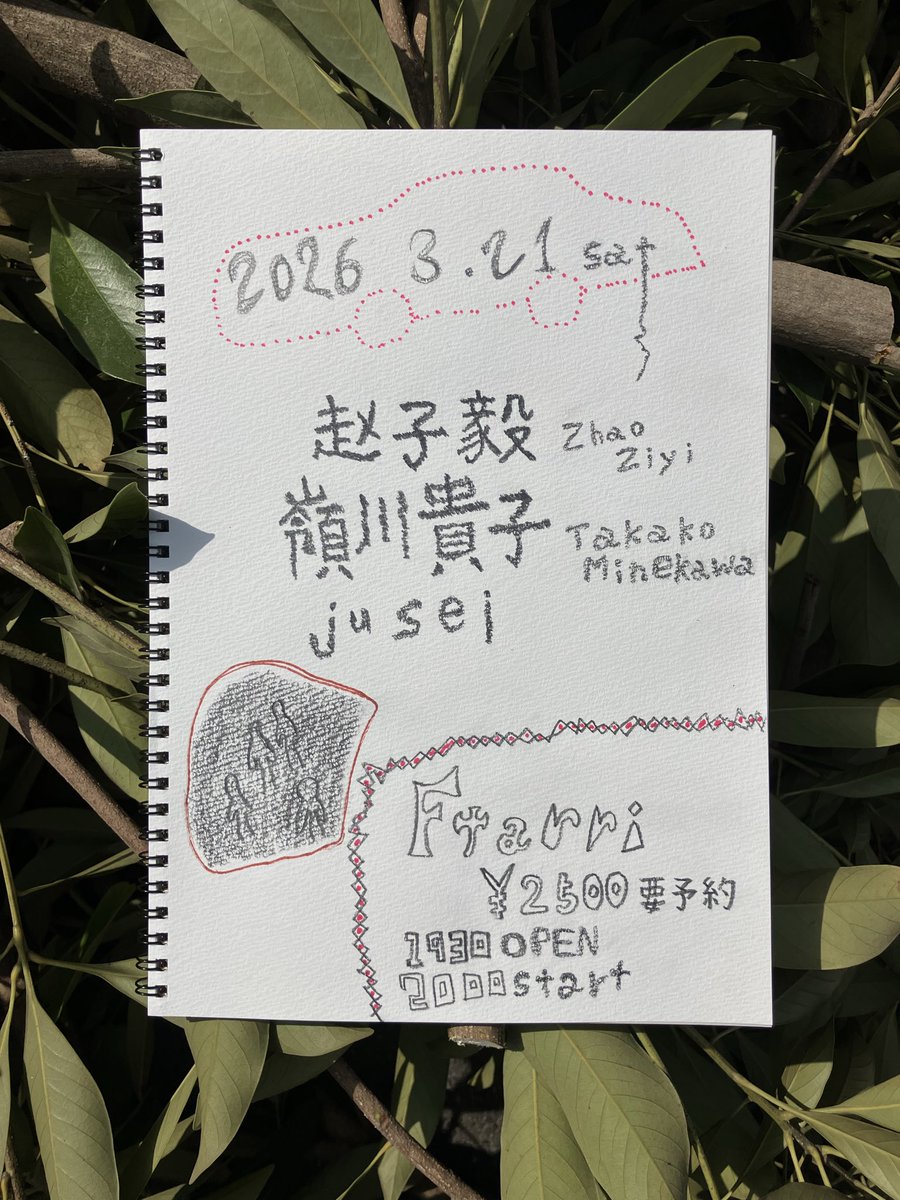 2026 3.21 sat
赵子毅 Zhao Ziyi
嶺川貴子 Takako Minekawa
jusei
Ftarri
¥2500 要予約
1930 OPEN
2000 start